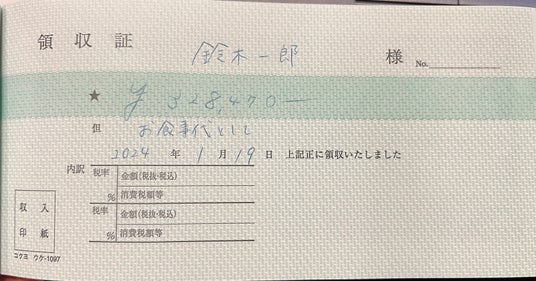 領収証 鈴木一郎 様 No.
★ ¥328,470-
但 お食事代として
2024年1月19日 上記正に領収いたしました
内訳 税率 金額(税抜・税込)
% 消費税額等
税率 金額(税抜・税込)
% 消費税額等
収入
印紙
コクヨ ウケ-1097